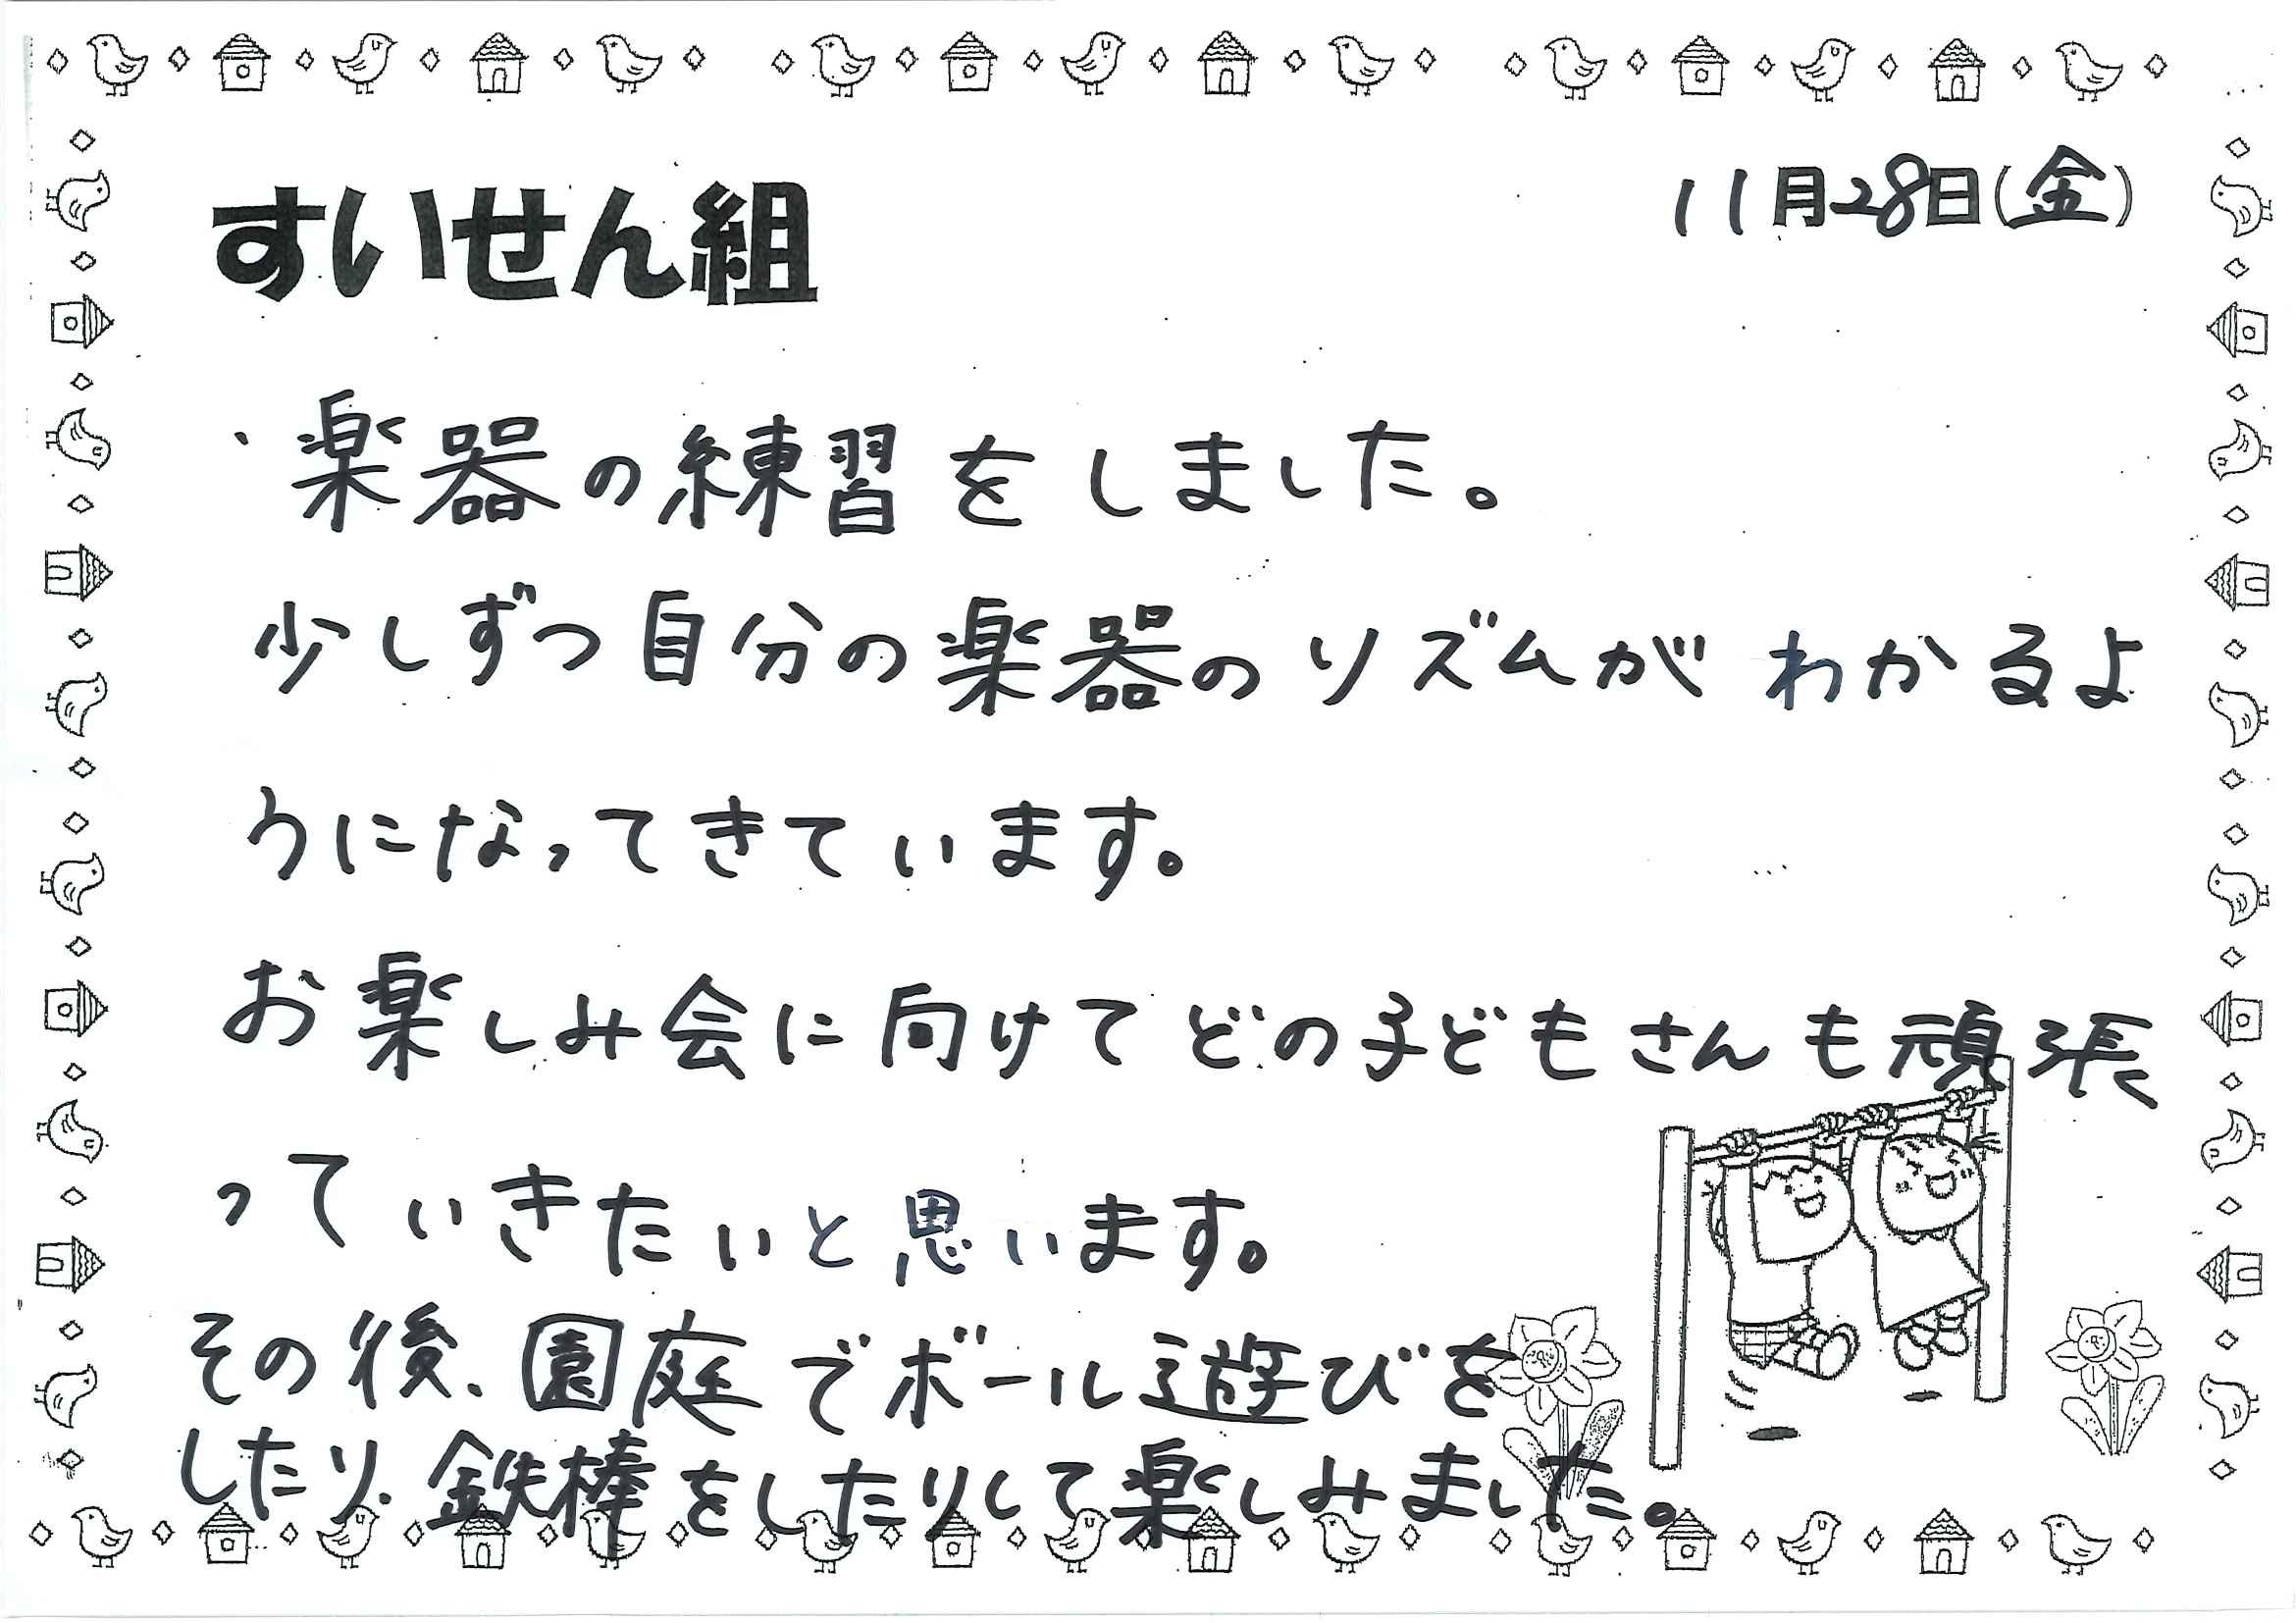 すいせん組
11月28日(金)
・楽器の練習をしました。
少しずつ自分の楽器のリズムがわかるよ
うになってきています。
お楽しみ会に向けてどの子どもさんも頑張
っていきたいと思います。
その後、園庭でボール遊びを
したり、鉄棒をしたりして楽しみました。